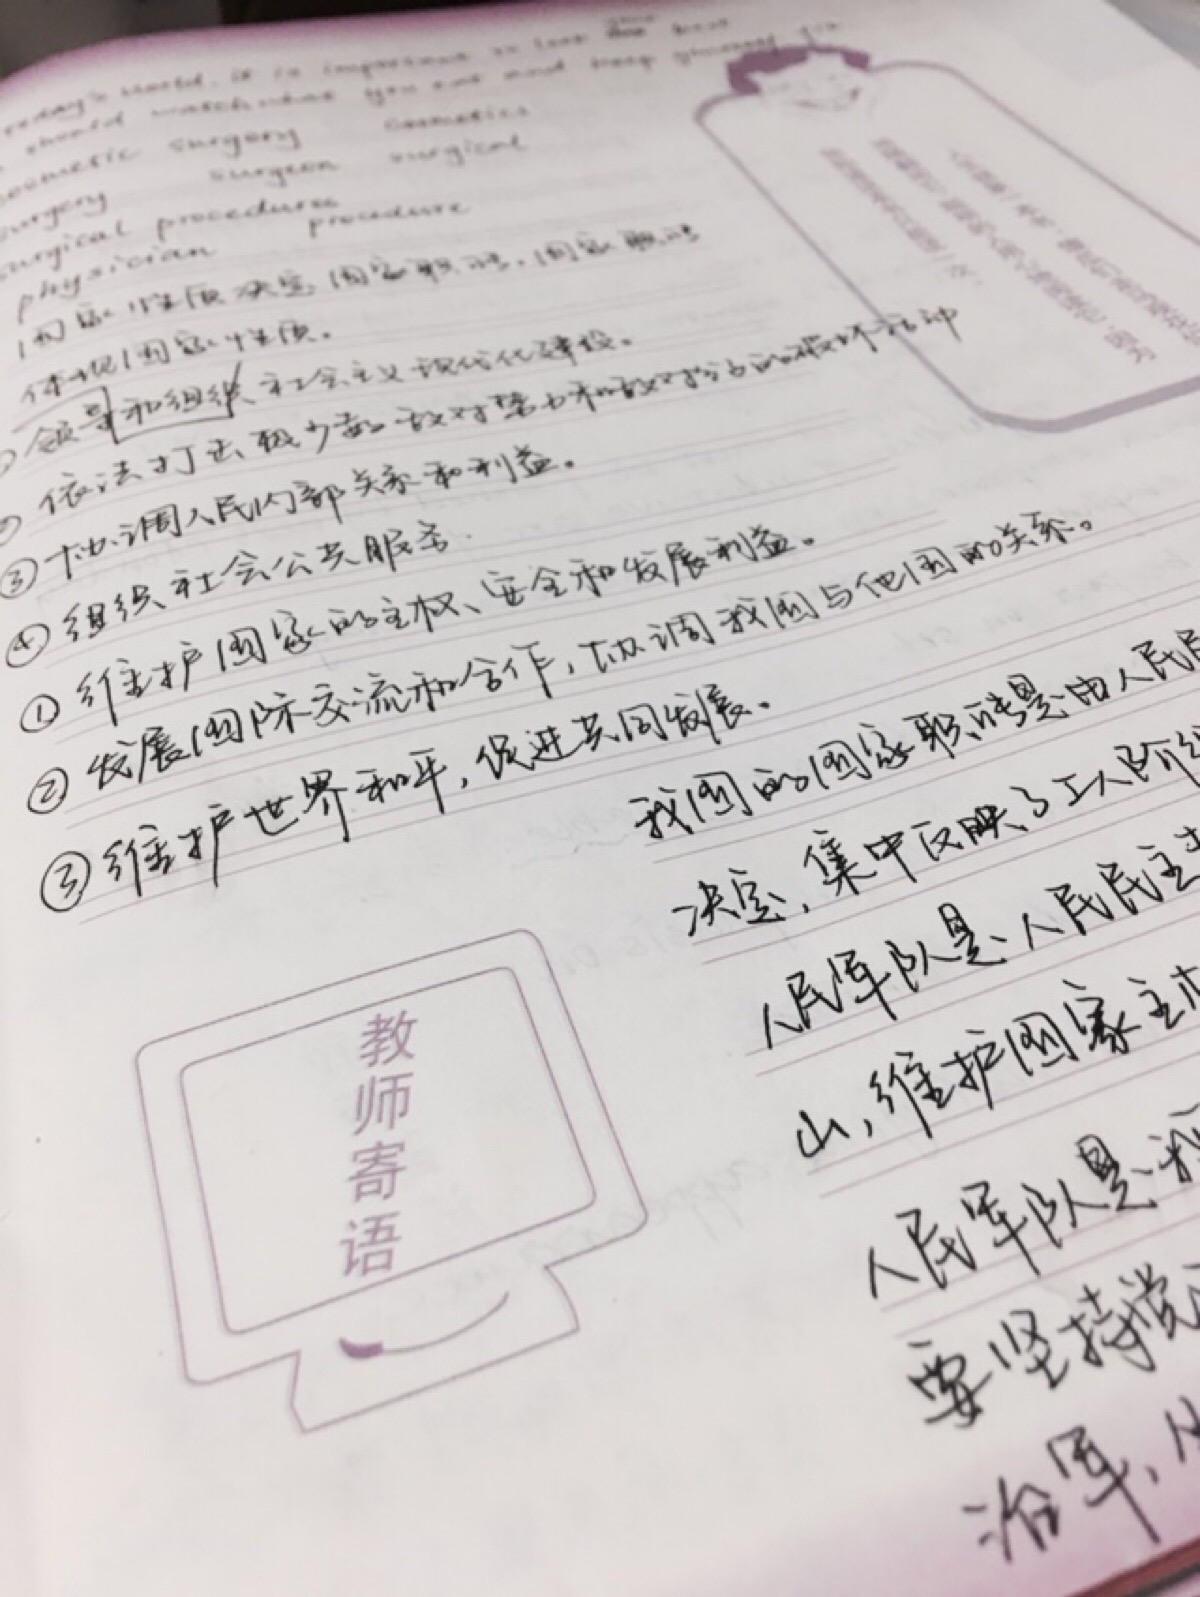 today's world, it is important to look
should watch what you eat and keep physically fit
cosmetic surgery cosmetics
surgery surgeon surgical
surgical procedures
physician procedure
国家性质决定国家职能,国家职能
体现国家性质。
领导和组织社会主义现代化建设。
② 依法打击极少数敌对势力和敌对分子的破坏活动
③ 协调人民内部关系和利益。
④ 组织社会公共服务.
① 维护国家的主权、安全和发展利益。
② 发展国际交流和合作,协调我国与他国的关系。
③ 维护世界和平,促进共同发展。
我国的国家职能是由人民民
决定,集中反映了工人阶级
人民军队是人民民主
山,维护国家主权
人民军队是我
要坚持党
治军,
教师寄语